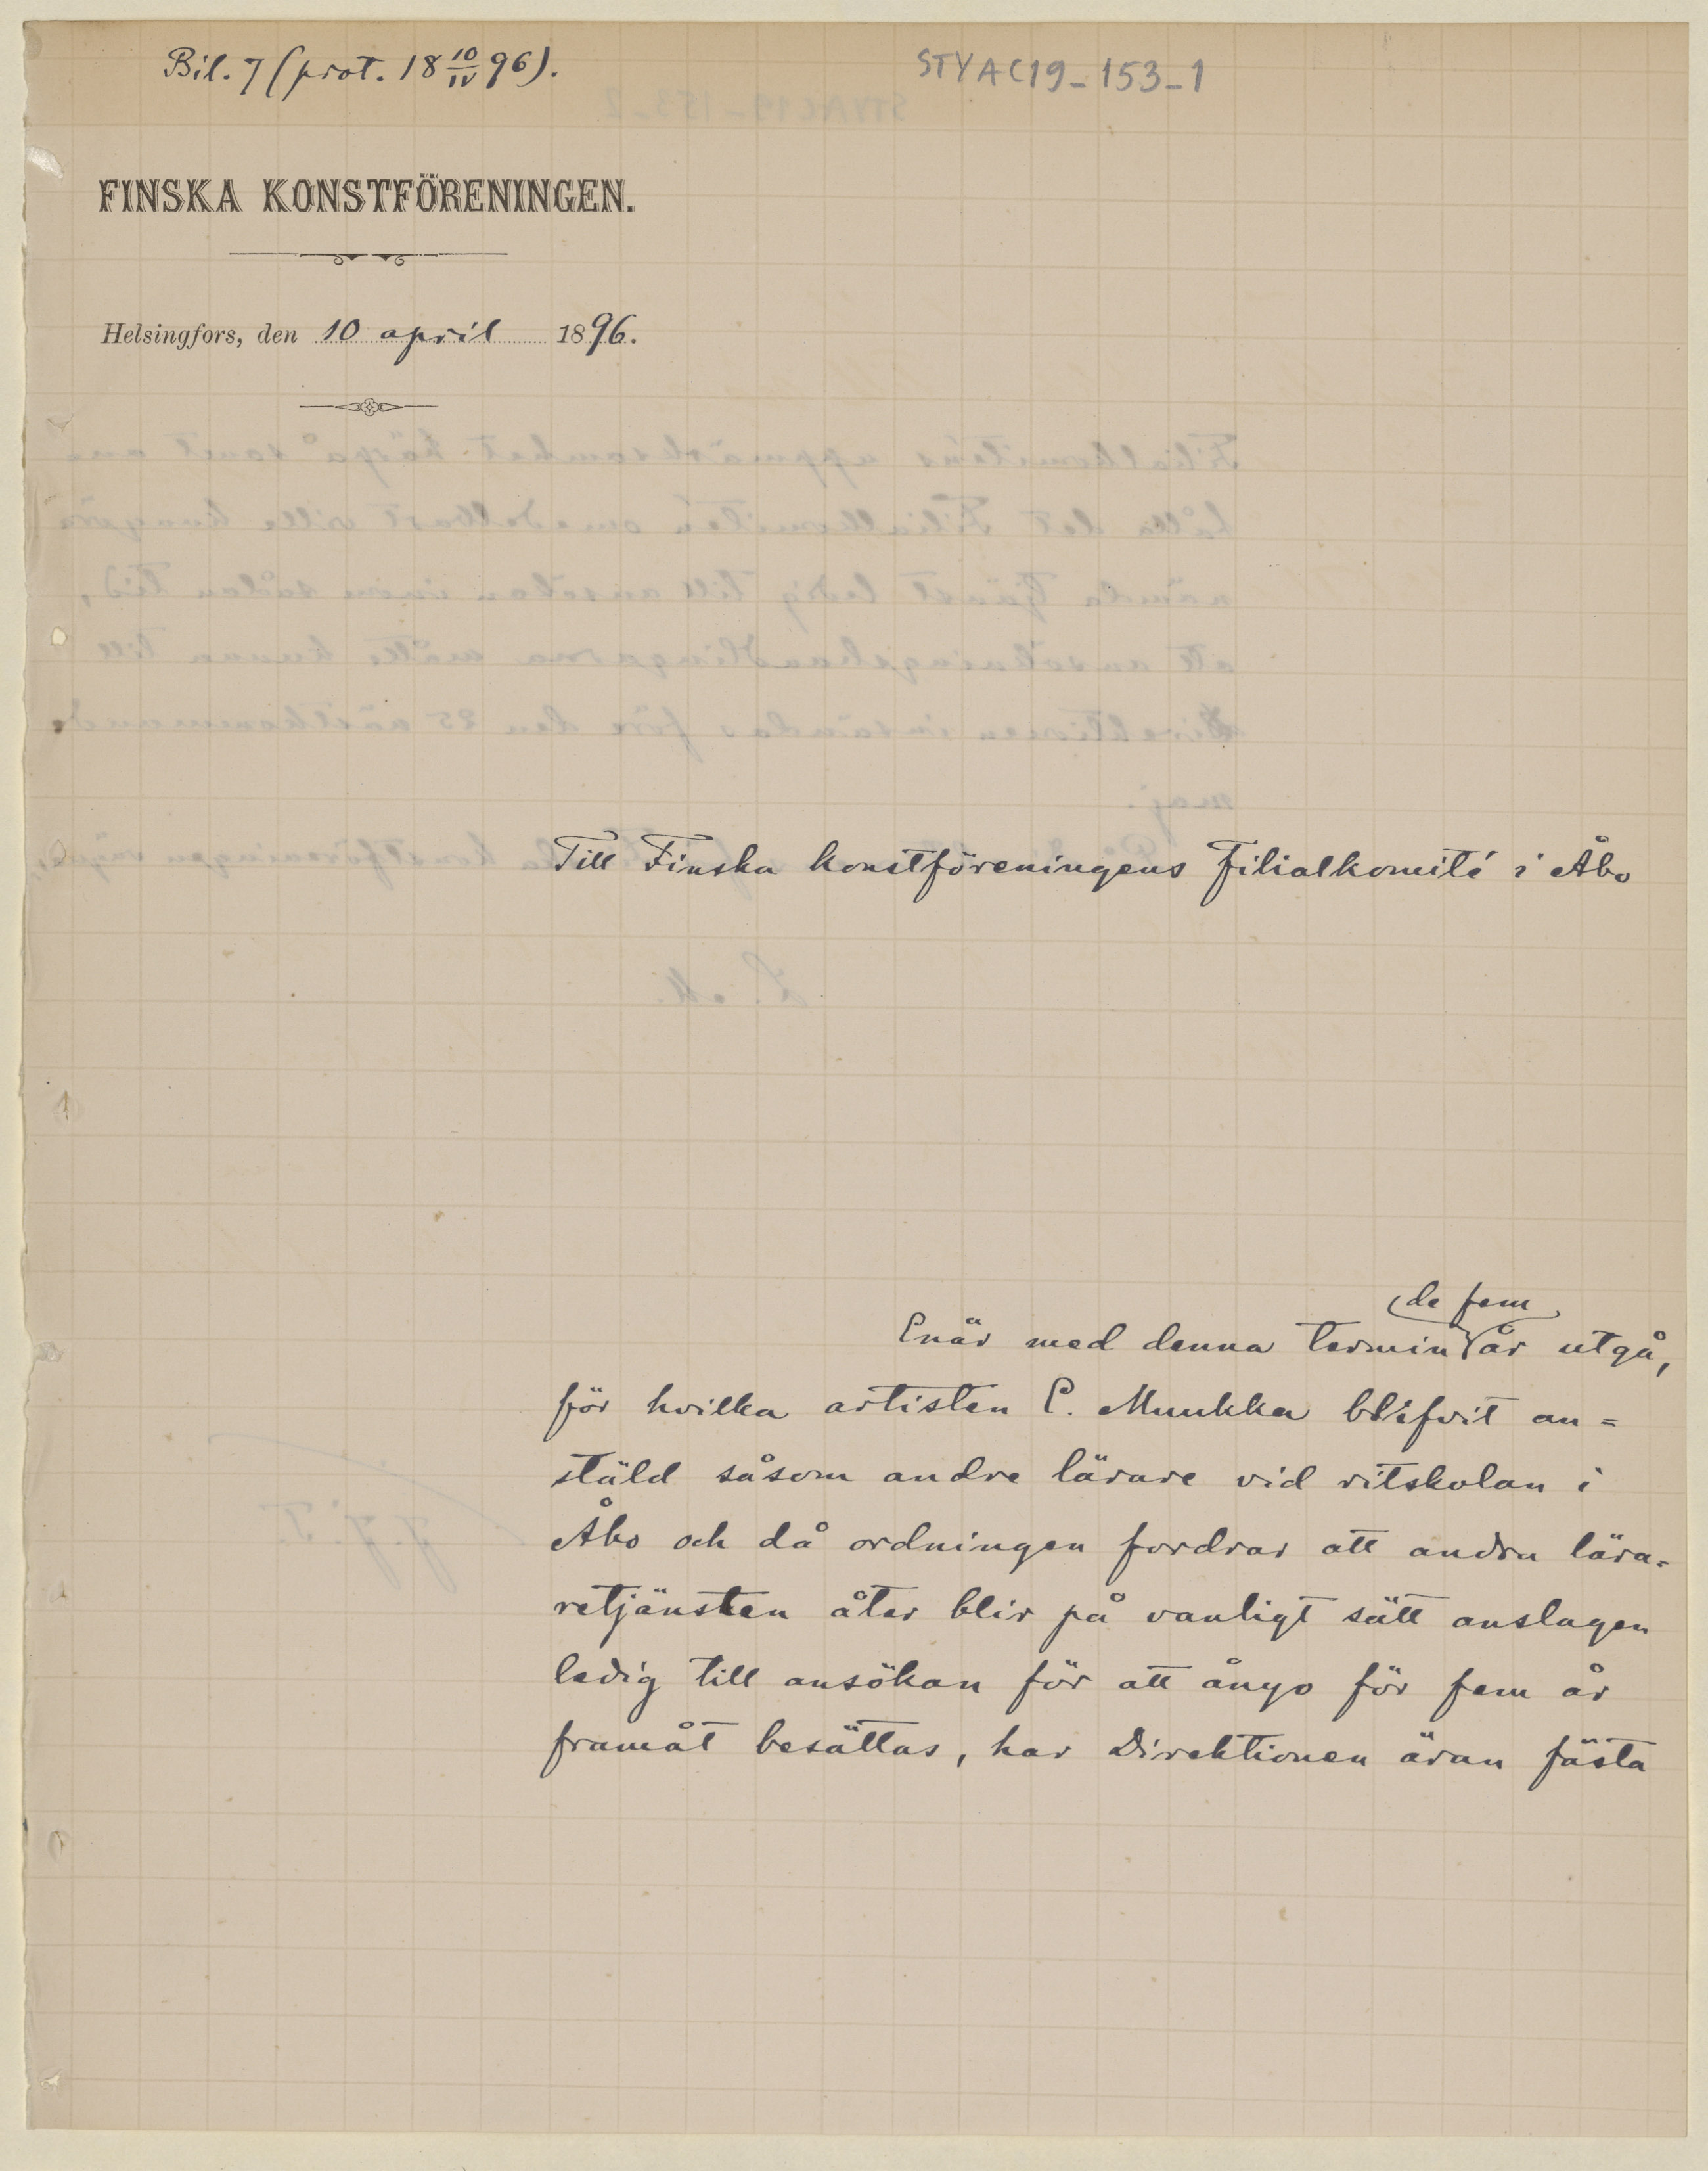 Bil. 7 (prot. 18 10/IV 96).
STYAC19_153_1
FINSKA KONSTFÖRENINGEN.
Helsingfors, den 10 april 1896.
Till Finska konstföreningens Filialkomité i Åbo
de fem
Enär med denna termin år utgå,
för hvilka artisten E. Muukka blifvit an=
stäld såsom andre lärare vid ritskolan i
Åbo och då ordningen fordrar att andra lära=
retjänsten åter blir på vanligt sätt anslagen
ledig till ansökan för att ånyo för fem år
framåt besättas, har Direktionen äran fästa